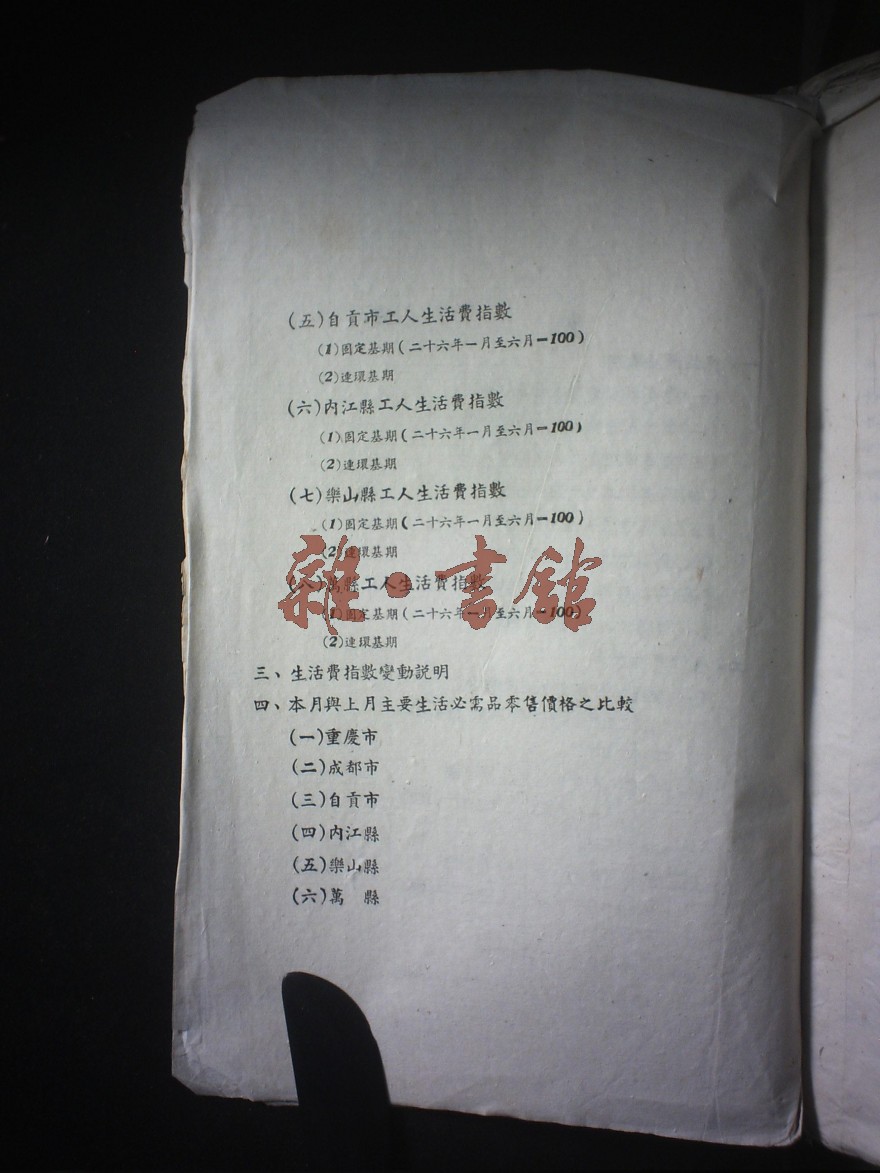 (五)自貢市工人生活費指數
(1)固定基期(二十六年一月至六月=100)
(2)連環基期
(六)内江縣工人生活費指數
(1)固定基期(二十六年一月至六月=100)
(2)連環基期
(七)樂山縣工人生活費指數
(1)固定基期(二十六年一月至六月=100)
(2)連環基期
(八)萬縣工人生活費指數
(1)固定基期(二十六年一月至六月=100)
(2)連環基期
三、生活費指數變動説明
四、本月與上月主要生活必需品零售價格之比較
(一)重慶市
(二)成都市
(三)自貢市
(四)内江縣
(五)樂山縣
(六)萬　縣
雜·書館